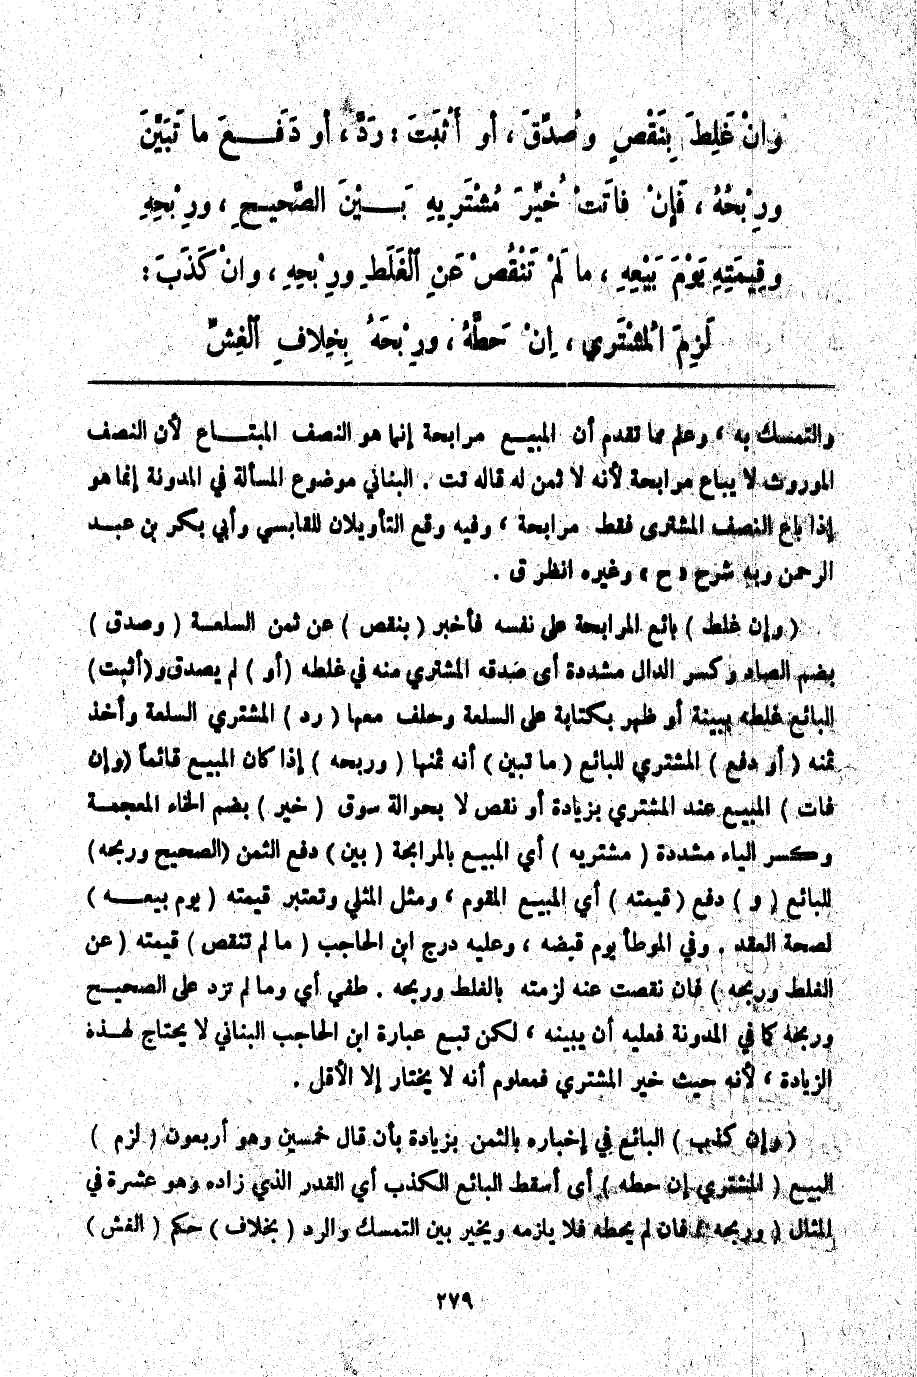 وانْ غَلِطَ بِنَقْصٍ وصُدِّقَ ، أو أَثْبَتَ : رَدَّ ، أو دَفَـــعَ ما تَبَيَّنَ
ورِبْحُهُ ، فَإِنْ فاتَتْ خُيِّرَ مُشْتَرِيهِ بَـــيْنَ الصَّحِيـحِ ، ورِبْحِهِ
وقِيمَتِهِ يَوْمَ بَيْعِهِ ، ما لَمْ تَنْقُصْ عَنِ ٱلْغَلَطِ ورِبْحِهِ ، وانْ كَذَبَ :
لَزِمَ ٱلمُشْتَرِي ، إنْ حَطَّهُ ، ورِبْحَهُ بِخِلافِ ٱلْغِشِّ
والتمسك به ، وعلم مما تقدم أن المبيـع مرابحة إنما هو النصف المبتـــاع لأن النصف
الموروث لا يباع مرابحة لأنه لا ثمن له قاله تت . البناني موضوع المسألة في المدونة إنما هو
إذا باع النصف المشترى فقط مرابحة ، وفيه وقع التأويلان للقابسي وأبي بكر بن عبـد
الرحمن وبه شرح « ح » وغيره انظر ق .
( وإن غلط ) بائع المرابحة على نفسه فأخبر ( بنقص ) عن ثمن السلعـة ( وصدق )
بضم الصاد وكسر الدال مشددة أى صَدقه المشتري منه في غلطه ( أو ) لم يصدق و(أثبت)
البائع غلطه ببينة أو ظهر بكتابة على السلعة وحلف معها ( رد ) المشتري السلعة وأخذ
ثمنه ( أو دفع ) المشتري للبائع ( ما تبين ) أنه ثمنها ( وربحه ) إذا كان المبيـع قائماً (وإن
فات ) المبيـع عند المشتري بزيادة أو نقص لا بحوالة سوق ( خير ) بضم الخاء المعجمـة
وكسر الياء مشددة ( مشتريه ) أي المبيـع بالمرابحة ( بين ) دفع الثمن (الصحيح وربحه)
للبائع ( و ) دفع ( قيمته ) أي المبيـع المقوم ، ومثل المثلي وتعتبر قيمته ( يوم بيعـــه )
لصحة العقد . وفي الموطأ يوم قبضه ، وعليه درج ابن الحاجب ( ما لم تنقص ) قيمته ( عن
الغلط وربحه ) فان نقصت عنه لزمته بالغلط وربحه . طفي أي وما لم تزد على الصحيـح
وربحه كما في المدونة فعليه أن يبينه ، لكن تبـع عبارة ابن الحاجب البناني لا يحتاج لهـذه
الزيادة ، لأنه حيث خير المشتري فمعلوم أنه لا يختار إلا الأقل .
( وإن كذب ) البائع في إخباره بالثمن بزيادة بأن قال خمسين وهو أربعون ( لزم )
البيـع ( المشتري إن حطه ) أى أسقط البائع الكذب أي القدر الذي زاده وهو عشرة في
المثال ( وربحه ) فان لم يحطه فلا يلزمه ويخير بين التمسك والرد ( بخلاف ) حكم ( الغش )
٢٧٩